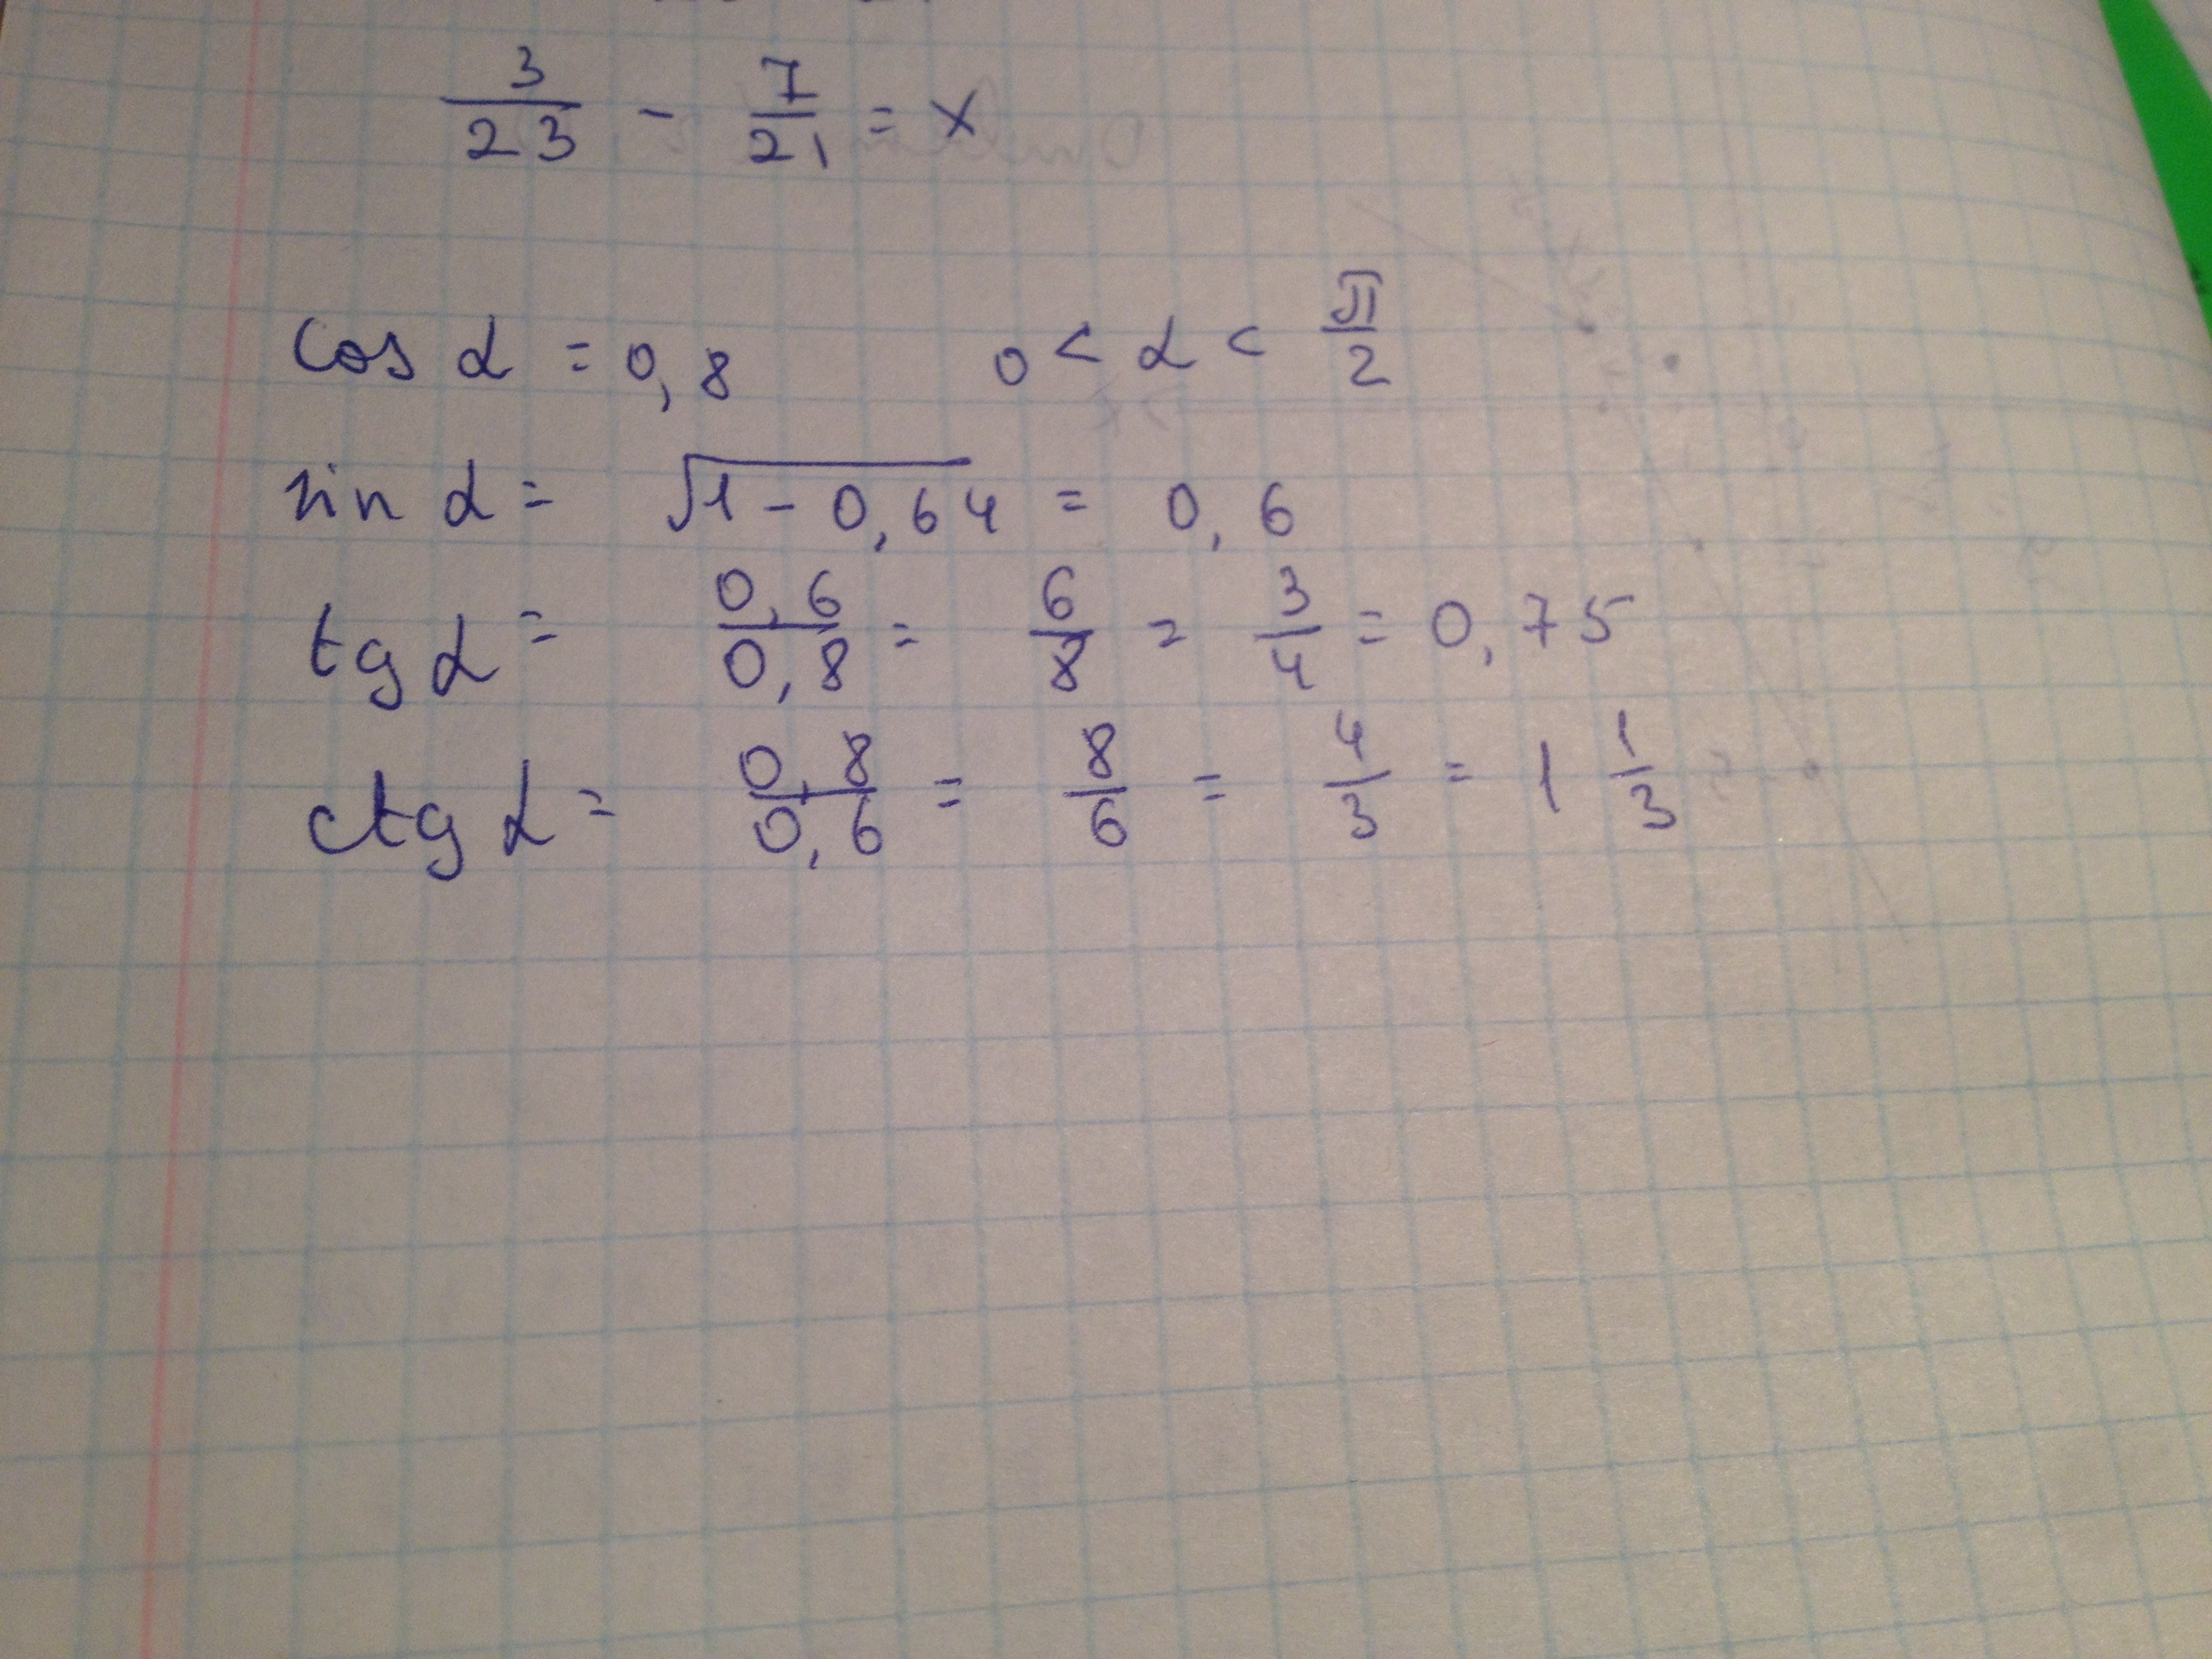 3/23 - 7/21 = x
cos α = 0,8 0 < α < π/2
sin α = √1 - 0,64 = 0,6
tg α = 0,6/0,8 = 6/8 = 3/4 = 0,75
ctg α = 0,8/0,6 = 8/6 = 4/3 = 1 1/3